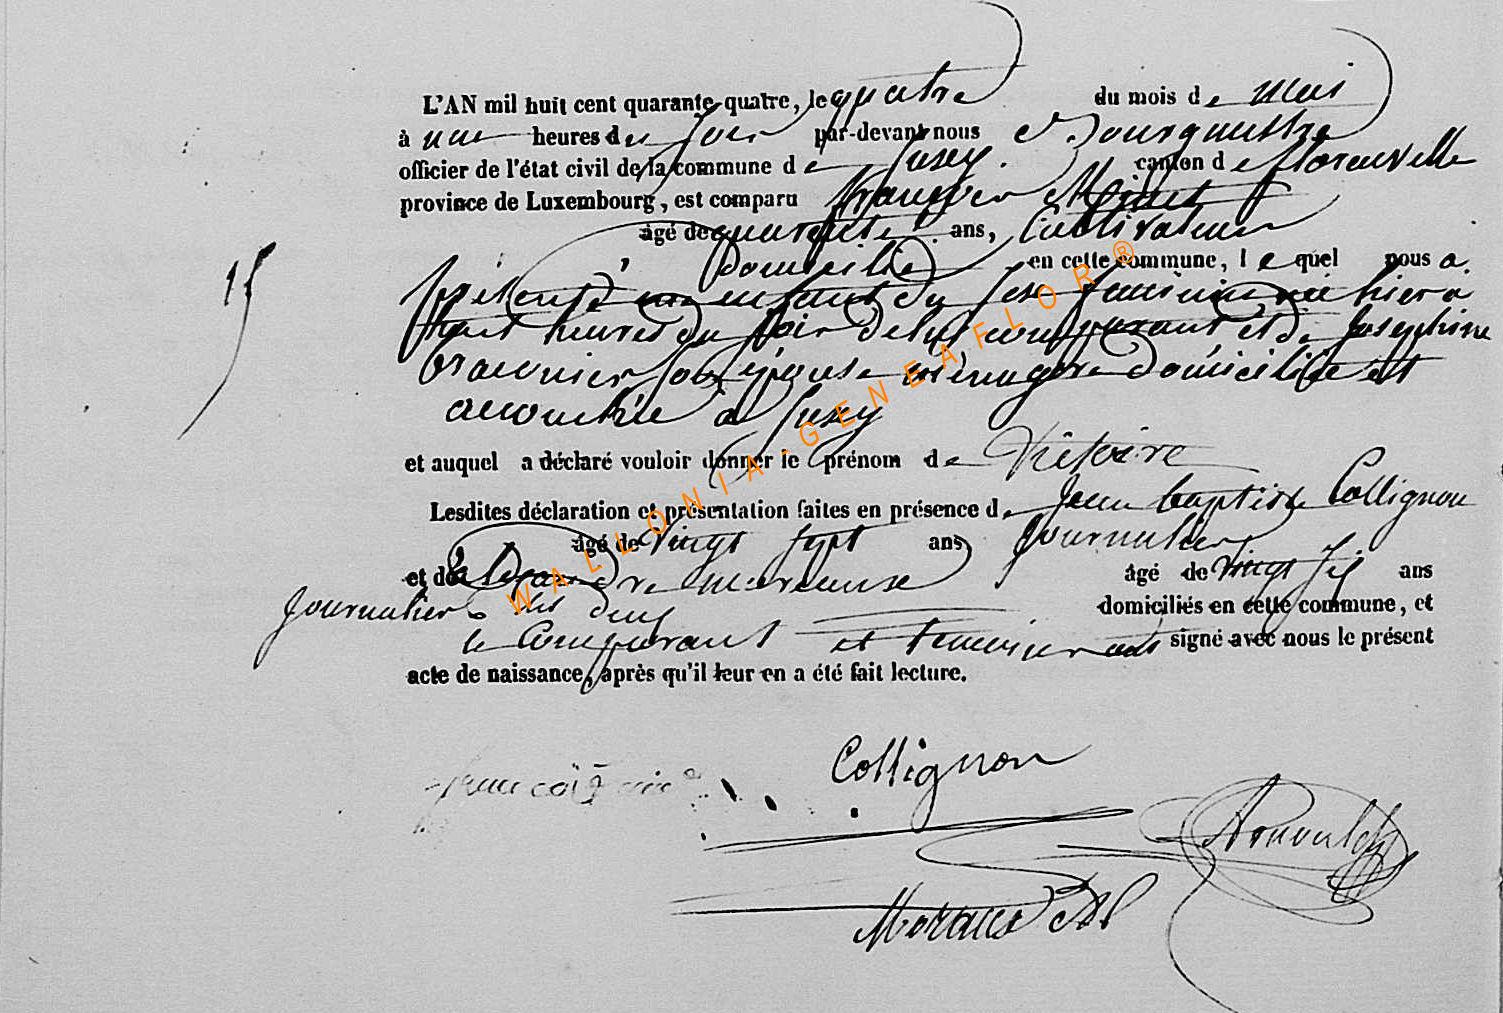 L'AN mil huit cent quarante-quatre, le quatre du mois de mai
à une heures du soir par-devant nous Bourgmestre
officier de l'état civil de la commune de Jusey. canton de florenville
province de Luxembourg, est comparu françois
âgé de quarante ans, Cultivateur
15
Domicilié en cette commune, lequel nous a
présenté un enfant du sexe feminin née hier à
huit heures du soir de lui comparant et de Josephine
son épouse ménagère domiciliée et
accouchée à Jusey
et auquel a déclaré vouloir donner le prénom de Victoire
Lesdites déclaration et présentation faites en présence de Jean baptiste Collignon
âgé de vingt sept ans Journalier
et de Alexandre marcaux âgé de vingt six ans
Journalier les deux domiciliés en cette commune, et
le Comparant et temoins ont signé avec nous le présent
acte de naissance, après qu'il leur en a été fait lecture.
Collignon
Arnould
WALLONIA-GENEAFLOR®